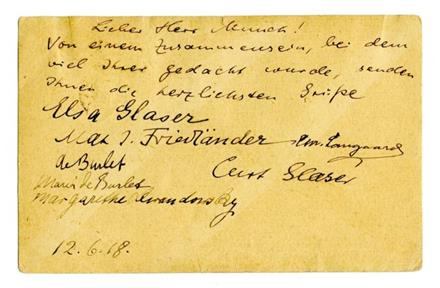 Lieber Herr Munch!
Von einem Zusammensein, bei dem
viel Ihrer gedacht wurde, senden
Ihnen die herzlichsten Grüße
Elsa Glaser
Max J. Friedländer
de Burlet Curt Glaser
Marie de Burlet
Margarethe
12.6.18.